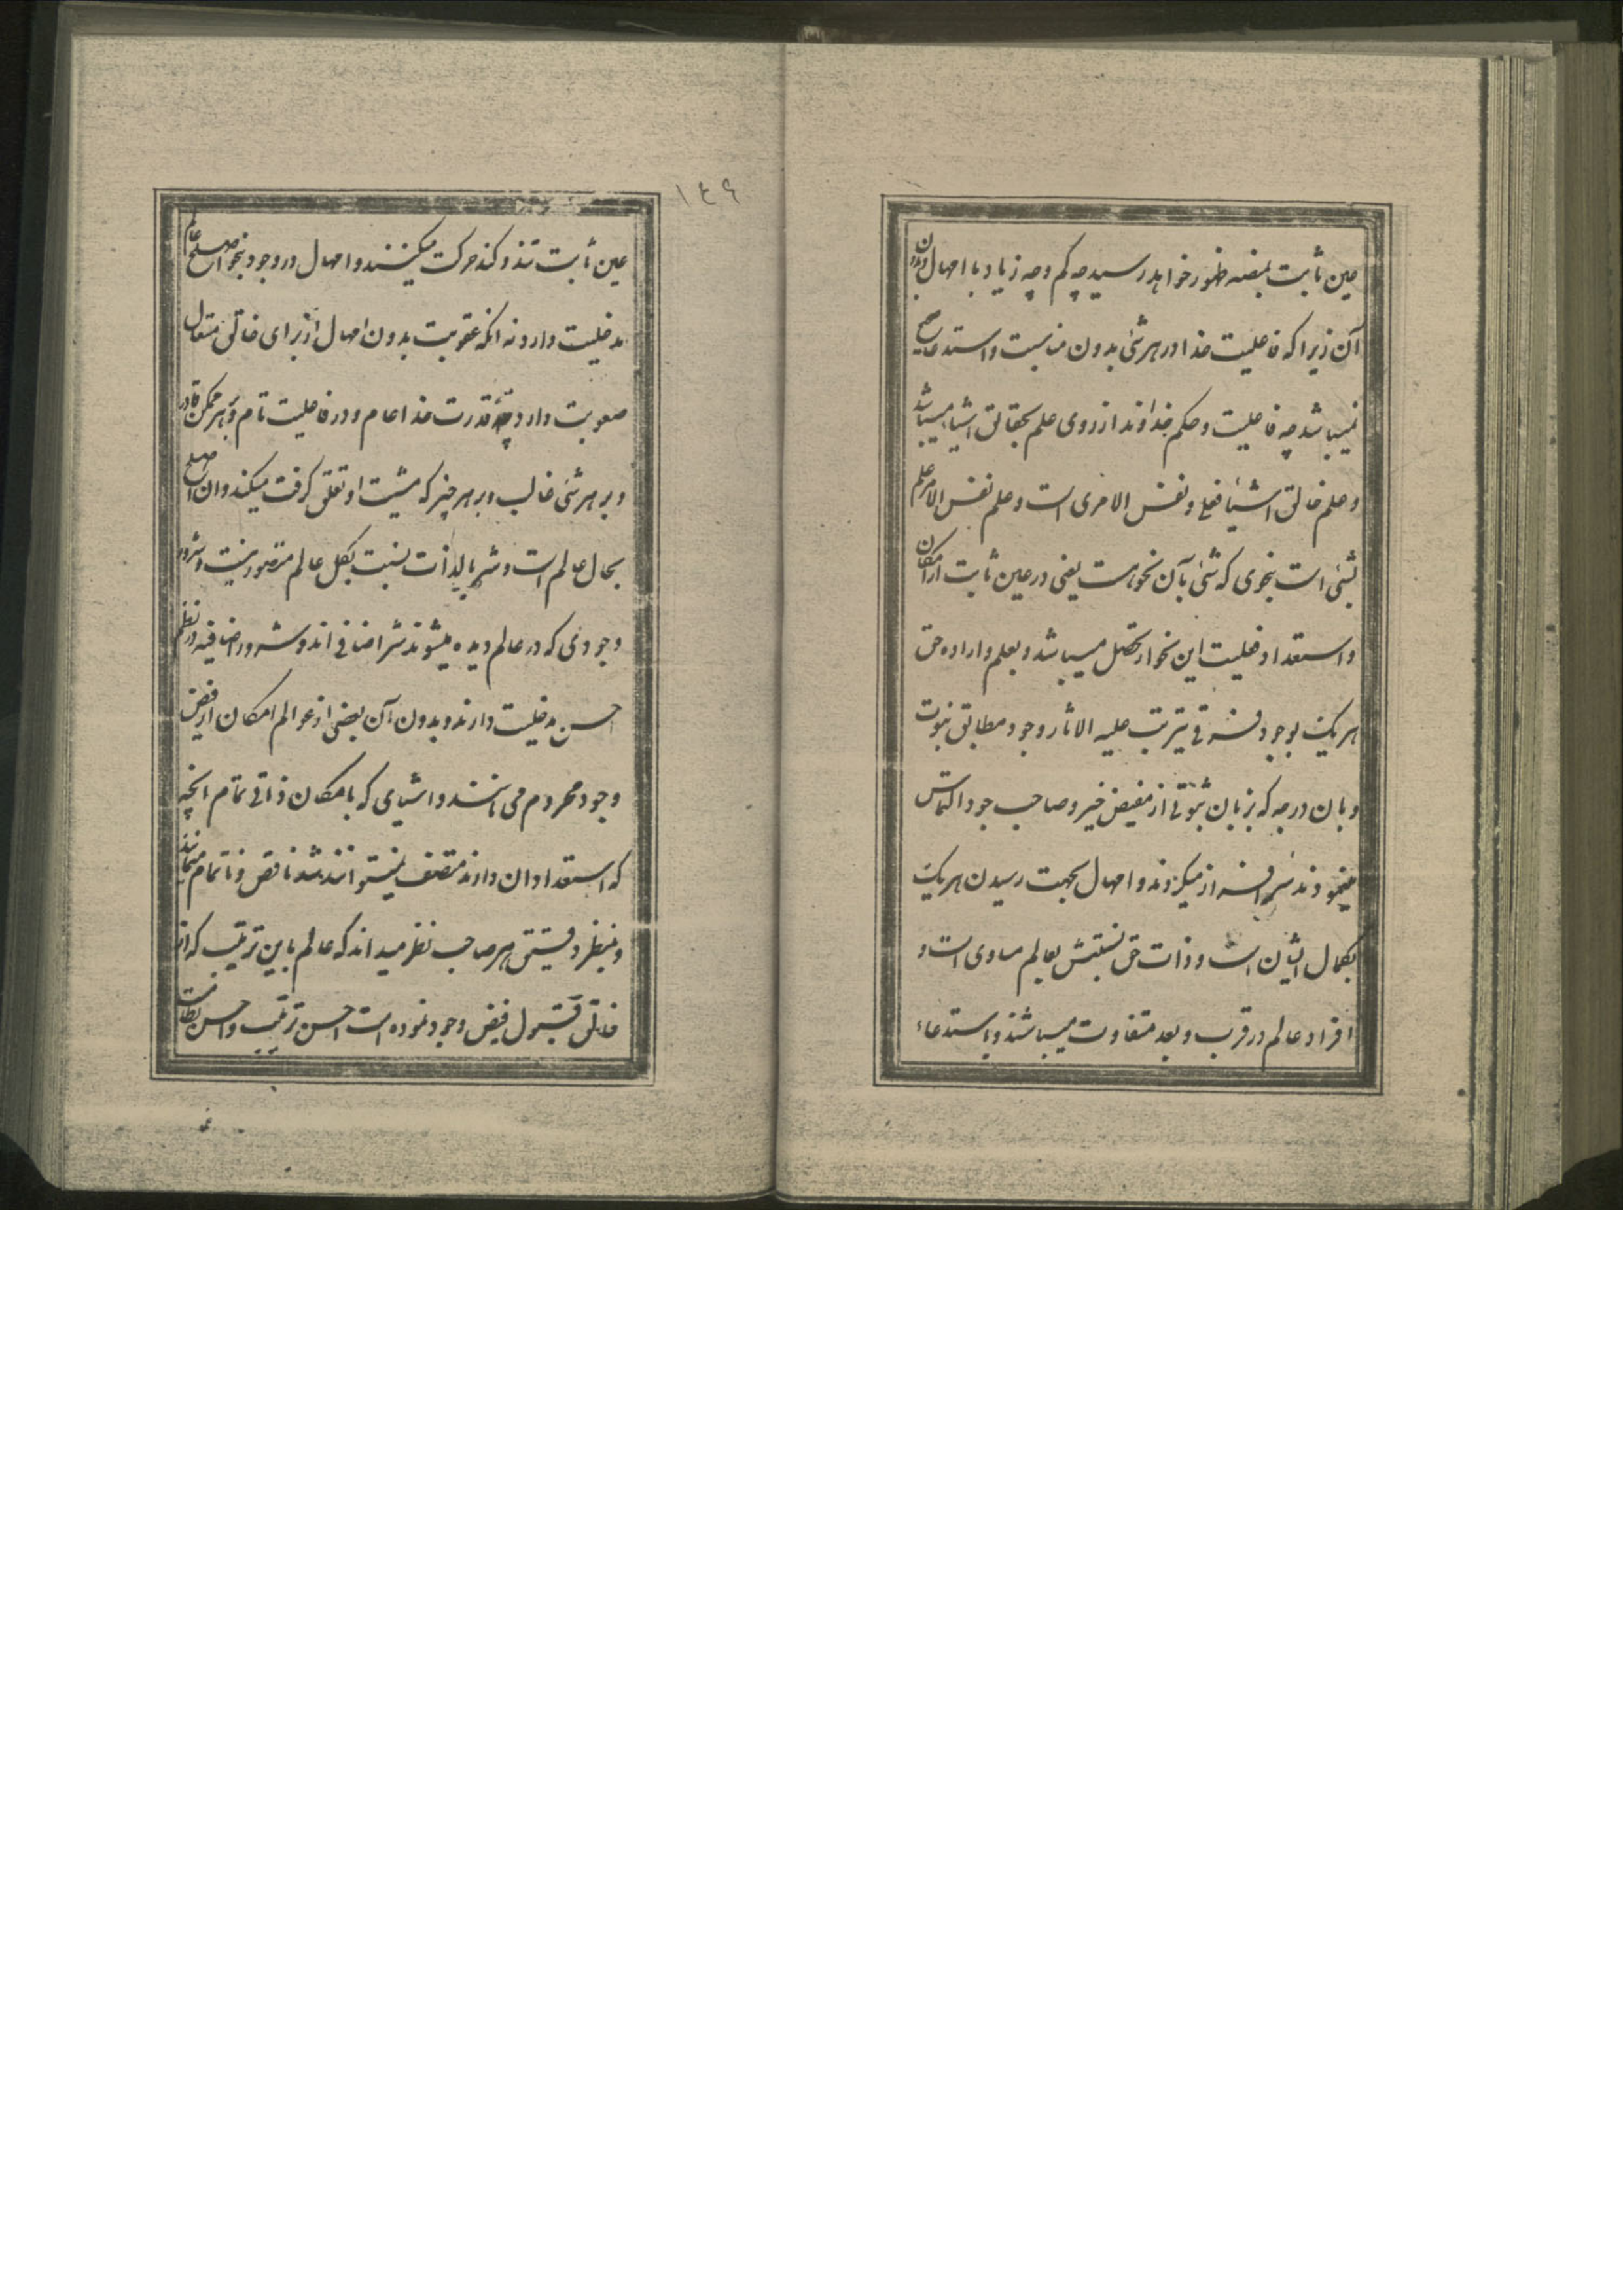 عین ثابت بمنصه ظهور خواهد رسید چه کم و چه زیاد با امهال و بدون
آن زیرا که فاعلیت خدا در هر شئ بدون مناسبت و استدعا صحیح
نمیباشد چه فاعلیت و حکم خداوند از روی علم بحقائق اشیا میباشد
و علم خالق اشیا فعلی و نفس الامری است و علم نفس الامر علم
بشئ است بنحوی که شئ بآن نحو هست یعنی در عین ثابت از امکان
و استعداد و فعلیت این نحو ار تحصل میباشد و بعلم و اراده حق
هر یک بوجود یترتب علیه الاثار وجود مطابق ثبوت
و بان درجه که بزبان ثبوتی از مفیض خیر و صاحب جود التماس
مینمودند سر افراز میگردند و امهال بجهت رسیدن هر یک
بکمال ایشان است و ذات حق نسبتش بعالم مساوی است و
افراد عالم در قرب و بعد متفاوت میباشند و باستدعاء
١٤٩
عین ثابت تند و کند حرکت میکنند و امهال در وجود بنحو اصلح عالم
مدخلیت دارد نه انکه عقوبت بدون امهال از برای خالق متعال
صعوبت دارد چه قدرت خدا عام و در فاعلیت تام و بر هر ممکن قادر
و بر هر شئ غالب و بر هر چیز که مشیت او تعلق گرفت میکند و ان اصلح
بحال عالم است و شر بالذات نسبت بکل عالم متصور نیست و شرور
وجودی که در عالم دیده میشوند شر اضافی اند و شرور اضافیه در نظم
احسن مدخلیت دارند و بدون آن بعضی از عوالم امکان از فیض
وجود محروم می مانند و اشیای که بامکان ذاتی تمام انچه
که استعداد ان دارند متصف نمیتوانند شد ناقص و ناتمام میمانند
و بنظر دقیق هر صاحب نظر میداند که عالم باین ترتیب که از
خالق قبول فیض وجود نموده است احسن ترتیب و احسن نظام است